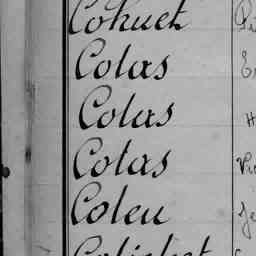 Cohuet
Colas
Colas
Colas
Coleu